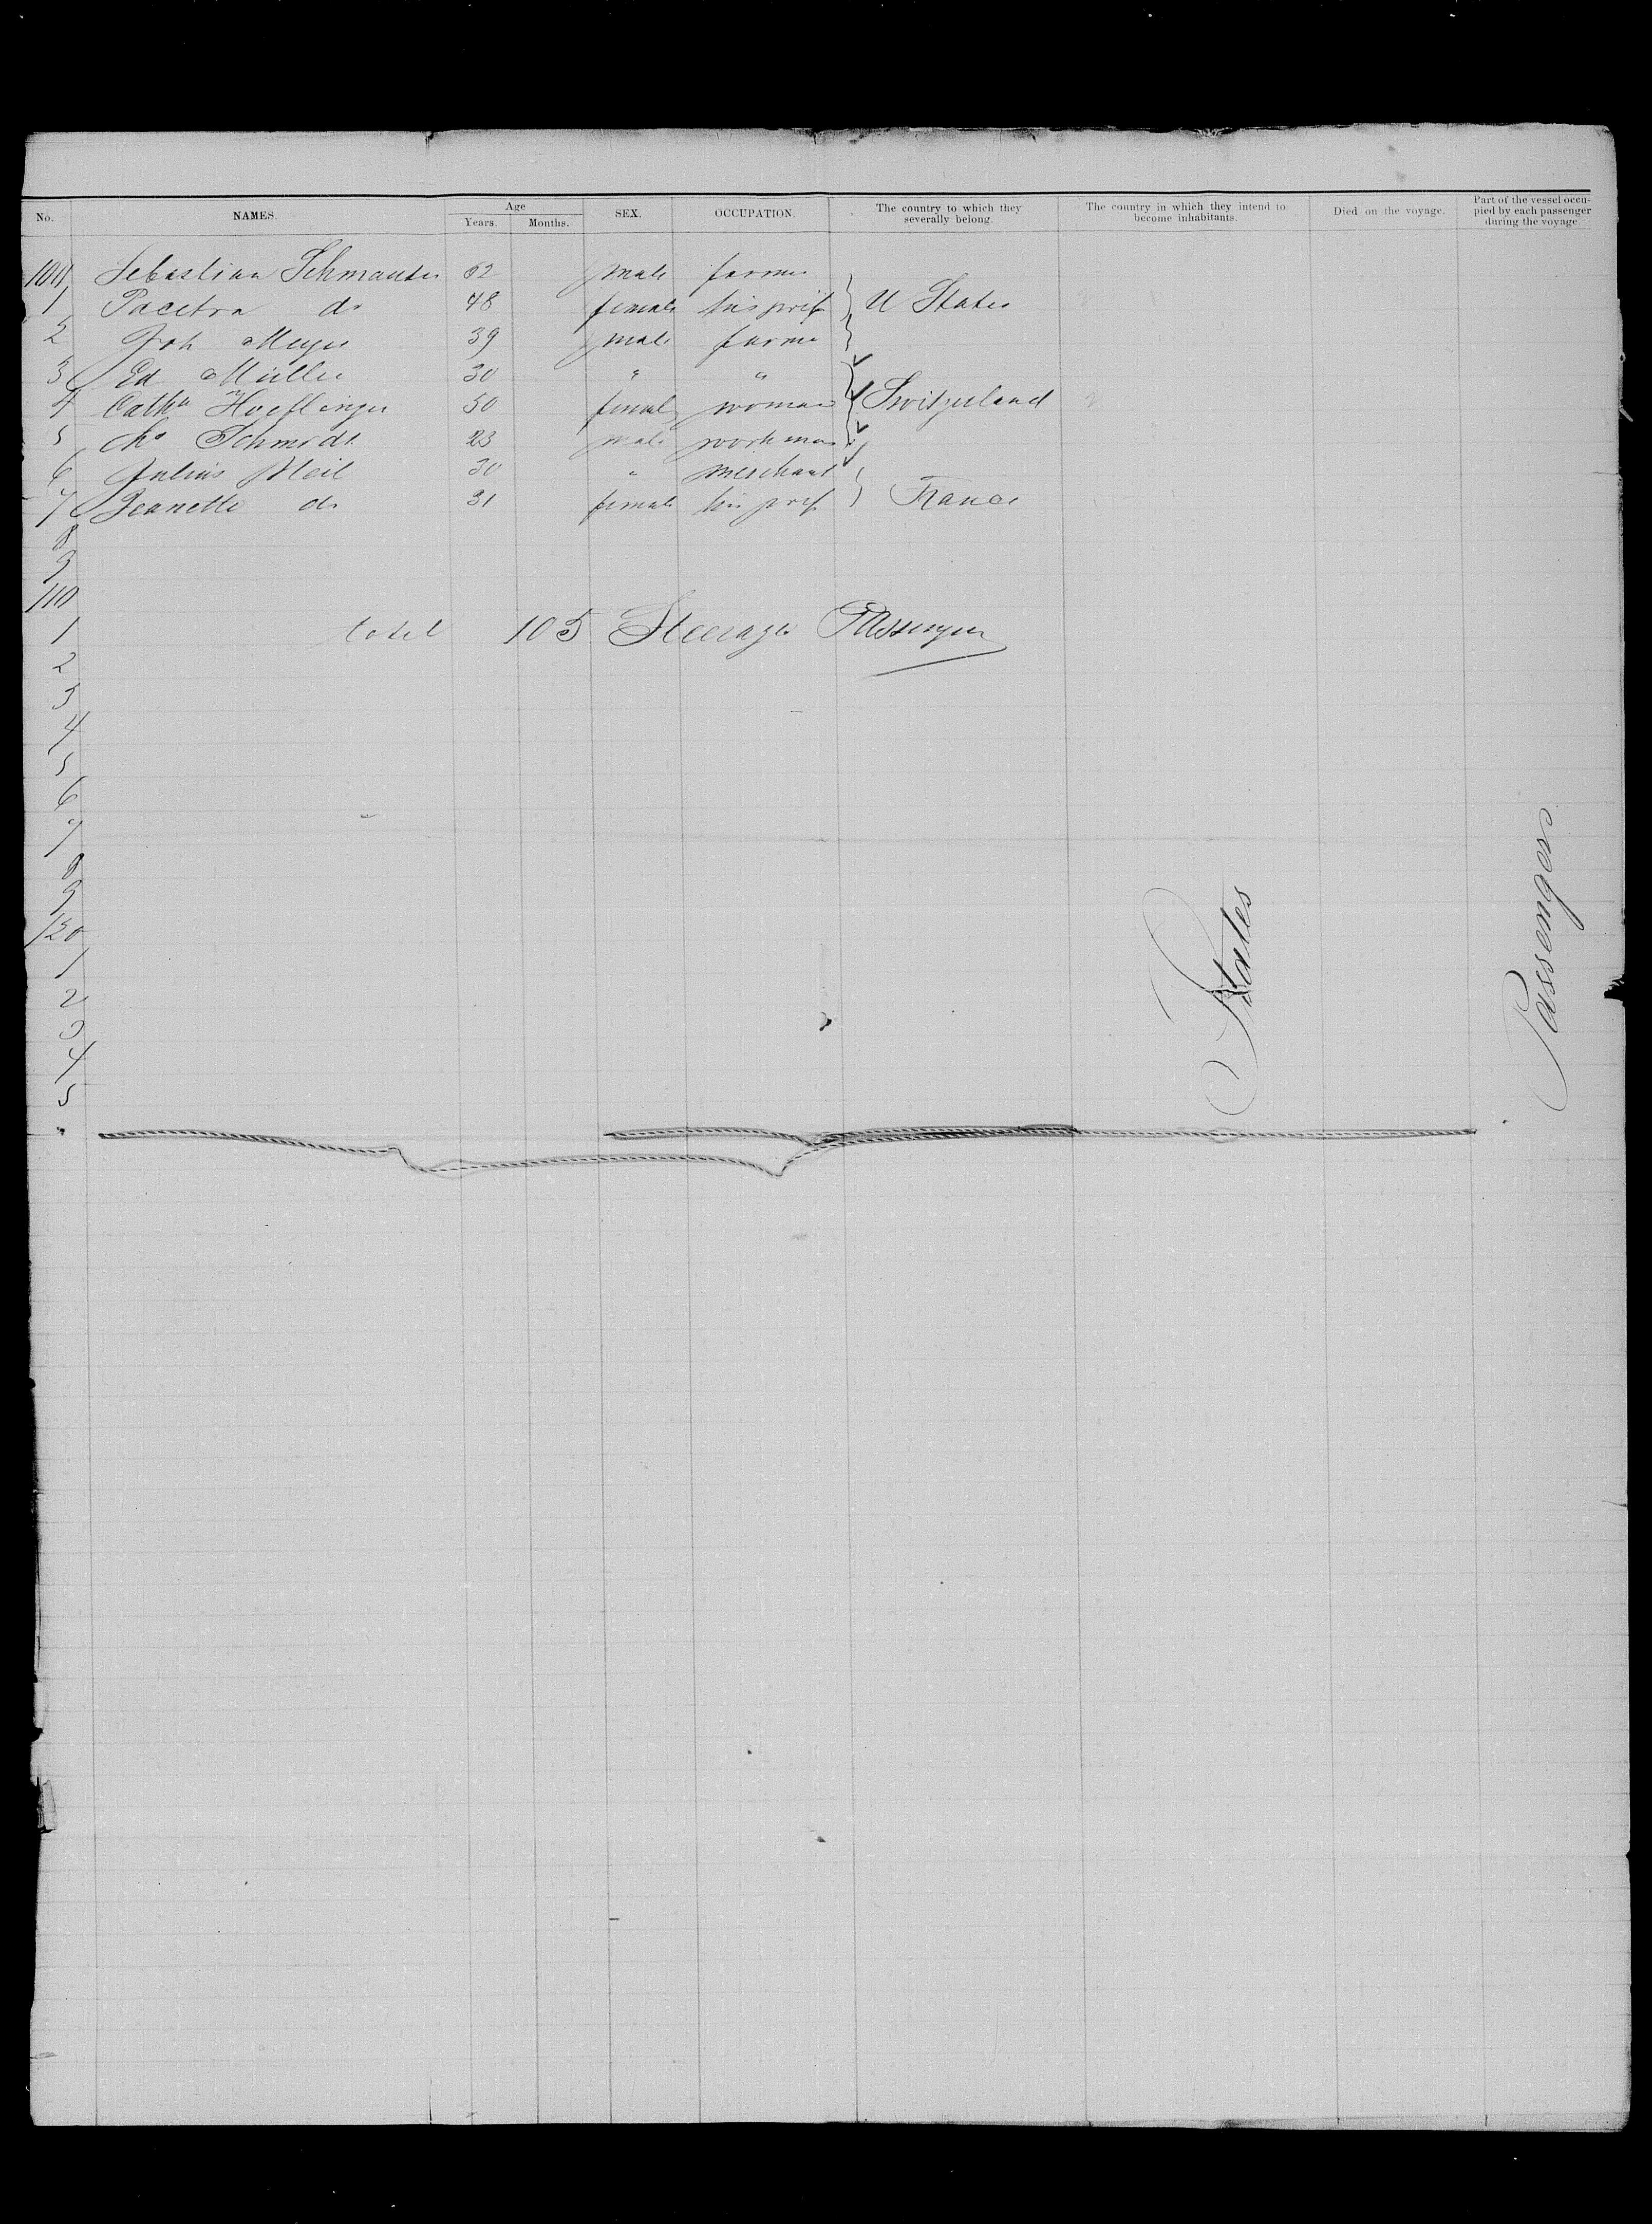 No. NAMES. Age Years. Months. SEX. OCCUPATION. The country to which they severally belong. The country in which they intend to become inhabitants. Died on the voyage. Part of the vessel occupied by each passenger during the voyage
100 Sebastian 62 male farmer
1 do 48 female his wife U States
2 Joh Meyer 39 male farmer
3 Ed Müller 30 " "
4 Cath Hoeflinger 50 female woman Switzerland
5 Schmidt 23 male workman
6 Julius Weil 30 " merchant
7 Jeanette do 31 female his wife France
8
9
110
1 total 105 Steerage Passengers
2
3
4
5
6
7
8
9
120
1
2
3
4
5
States
Passengers